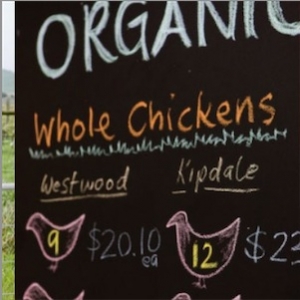 ORGANIC
Whole Chickens
Westwood Kipdale
9 $20.10 ea 12 $2